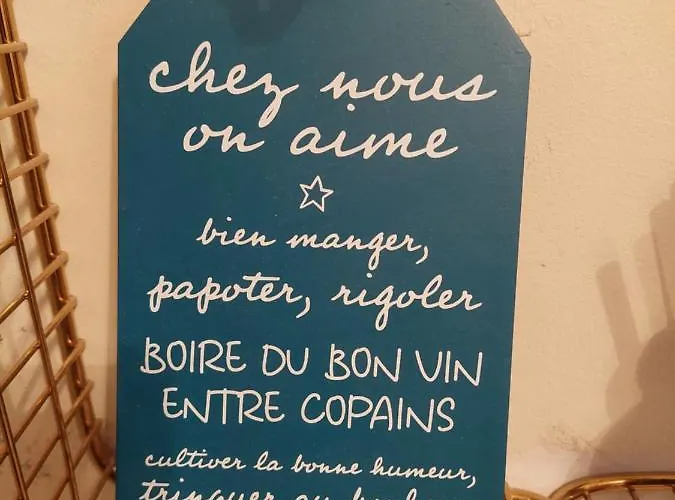 chez nous
on aime
bien manger,
papoter, rigoler
BOIRE DU BON VIN
ENTRE COPAINS
cultiver la bonne humeur,
trinquer au